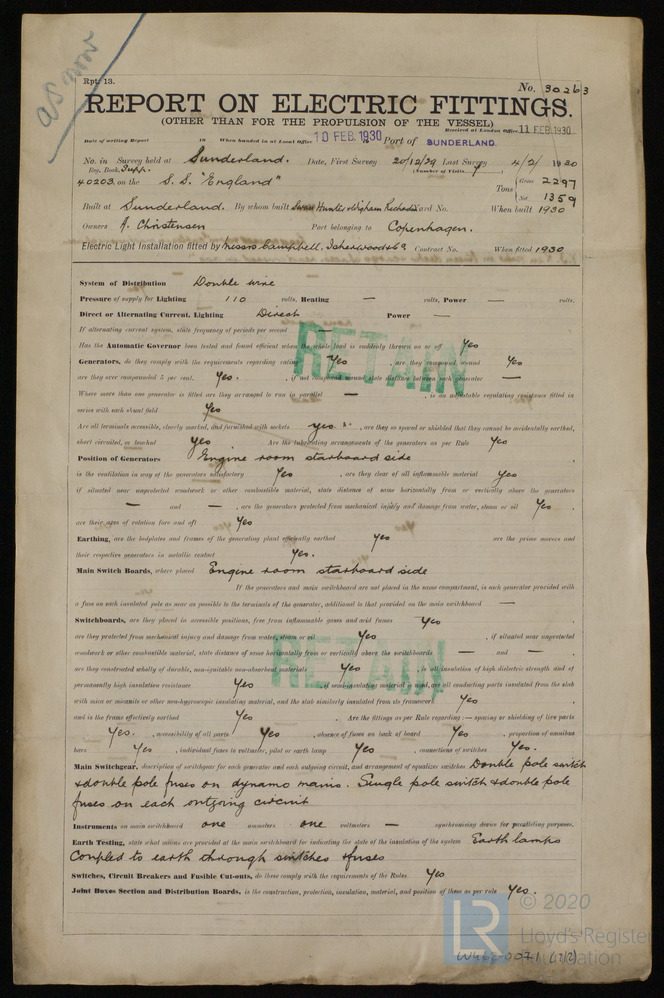 as now
Rpt. 13.
No. 30263
REPORT ON ELECTRIC FITTINGS.
(OTHER THAN FOR THE PROPULSION OF THE VESSEL)
Received at London Office 11 FEB 1930
Date of writing Report 19 When handed in at Local Office 10 FEB. 1930 Port of SUNDERLAND
No. in Survey held at Sunderland. Date, First Survey 20/12/29 Last Survey 4/2/ 1930
Reg. Book. Supp. (Number of Visits 7)
40203 on the S.S. "England" Tons Gross 2297
Net 1359
Built at Sunderland. By whom built Swan Hunter & Wigham Richardson Yard No. When built 1930
Owners A. Christensen Port belonging to Copenhagen.
Electric Light Installation fitted by Messrs Campbell, Isherwood & Co Contract No. When fitted 1930
System of Distribution Double wire
Pressure of supply for Lighting 110 volts, Heating — volts, Power — volts.
Direct or Alternating Current, Lighting Direct Power —
If alternating current system, state frequency of periods per second —
Has the Automatic Governor been tested and found efficient when the whole load is suddenly thrown on or off Yes
Generators, do they comply with the requirements regarding rating Yes , are they compound wound Yes
are they over compounded 5 per cent. Yes. , if not compound wound state distance between each generator —
Where more than one generator is fitted are they arranged to run in parallel — , is an adjustable regulating resistance fitted in
series with each shunt field Yes
Are all terminals accessible, clearly marked, and furnished with sockets Yes , are they so spaced or shielded that they cannot be accidentally earthed,
short circuited, or touched Yes Are the lubricating arrangements of the generators as per Rule Yes
Position of Generators Engine room starboard side
is the ventilation in way of the generators satisfactory Yes , are they clear of all inflammable material Yes
if situated near unprotected woodwork or other combustible material, state distance of same horizontally from or vertically above the generators
— and — , are the generators protected from mechanical injury and damage from water, steam or oil Yes .
are their axes of rotation fore and aft Yes
Earthing, are the bedplates and frames of the generating plant efficiently earthed Yes are the prime movers and
their respective generators in metallic contact Yes.
Main Switch Boards, where placed Engine room starboard side
If the generators and main switchboard are not placed in the same compartment, is each generator provided with
a fuse on each insulated pole as near as possible to the terminals of the generator, additional to that provided on the main switchboard —
Switchboards, are they placed in accessible positions, free from inflammable gases and acid fumes Yes
are they protected from mechanical injury and damage from water, steam or oil Yes , if situated near unprotected
woodwork or other combustible material, state distance of same horizontally from or vertically above the switchboards — and — ,
are they constructed wholly of durable, non-ignitable non-absorbent materials Yes , is all insulation of high dielectric strength and of
permanently high insulation resistance Yes , if semi-insulating material is used, are all conducting parts insulated from the slab
with mica or micanite or other non-hygroscopic insulating material, and the slab similarly insulated from its framework Yes
and is the frame effectively earthed Yes . Are the fittings as per Rule regarding:— spacing or shielding of live parts
Yes. , accessibility of all parts Yes , absence of fuses on back of board Yes , proportion of omnibus
bars Yes , individual fuses to voltmeter, pilot or earth lamp Yes , connections of switches Yes.
Main Switchgear, description of switchgear for each generator and each outgoing circuit, and arrangement of equalizer switches Double pole switch
& double pole fuses on dynamo mains. Single pole switch & double pole
fuses on each outgoing circuit
Instruments on main switchboard one ammeters one voltmeters — synchronising device for paralleling purposes.
Earth Testing, state what means are provided at the main switchboard for indicating the state of the insulation of the system Earth lamps
Coupled to earth through switches & fuses
Switches, Circuit Breakers and Fusible Cut-outs, do these comply with the requirements of the Rules Yes
Joint Boxes Section and Distribution Boards, is the construction, protection, insulation, material, and position of these as per rule Yes.
RETAIN
RETAIN
LR
© 2020
Lloyd's Register
Foundation
W466-0071 (1/2)